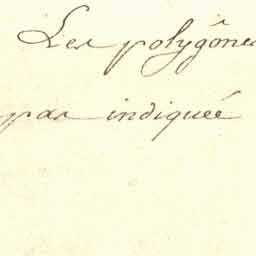 Les polygônes
pas indiquéé